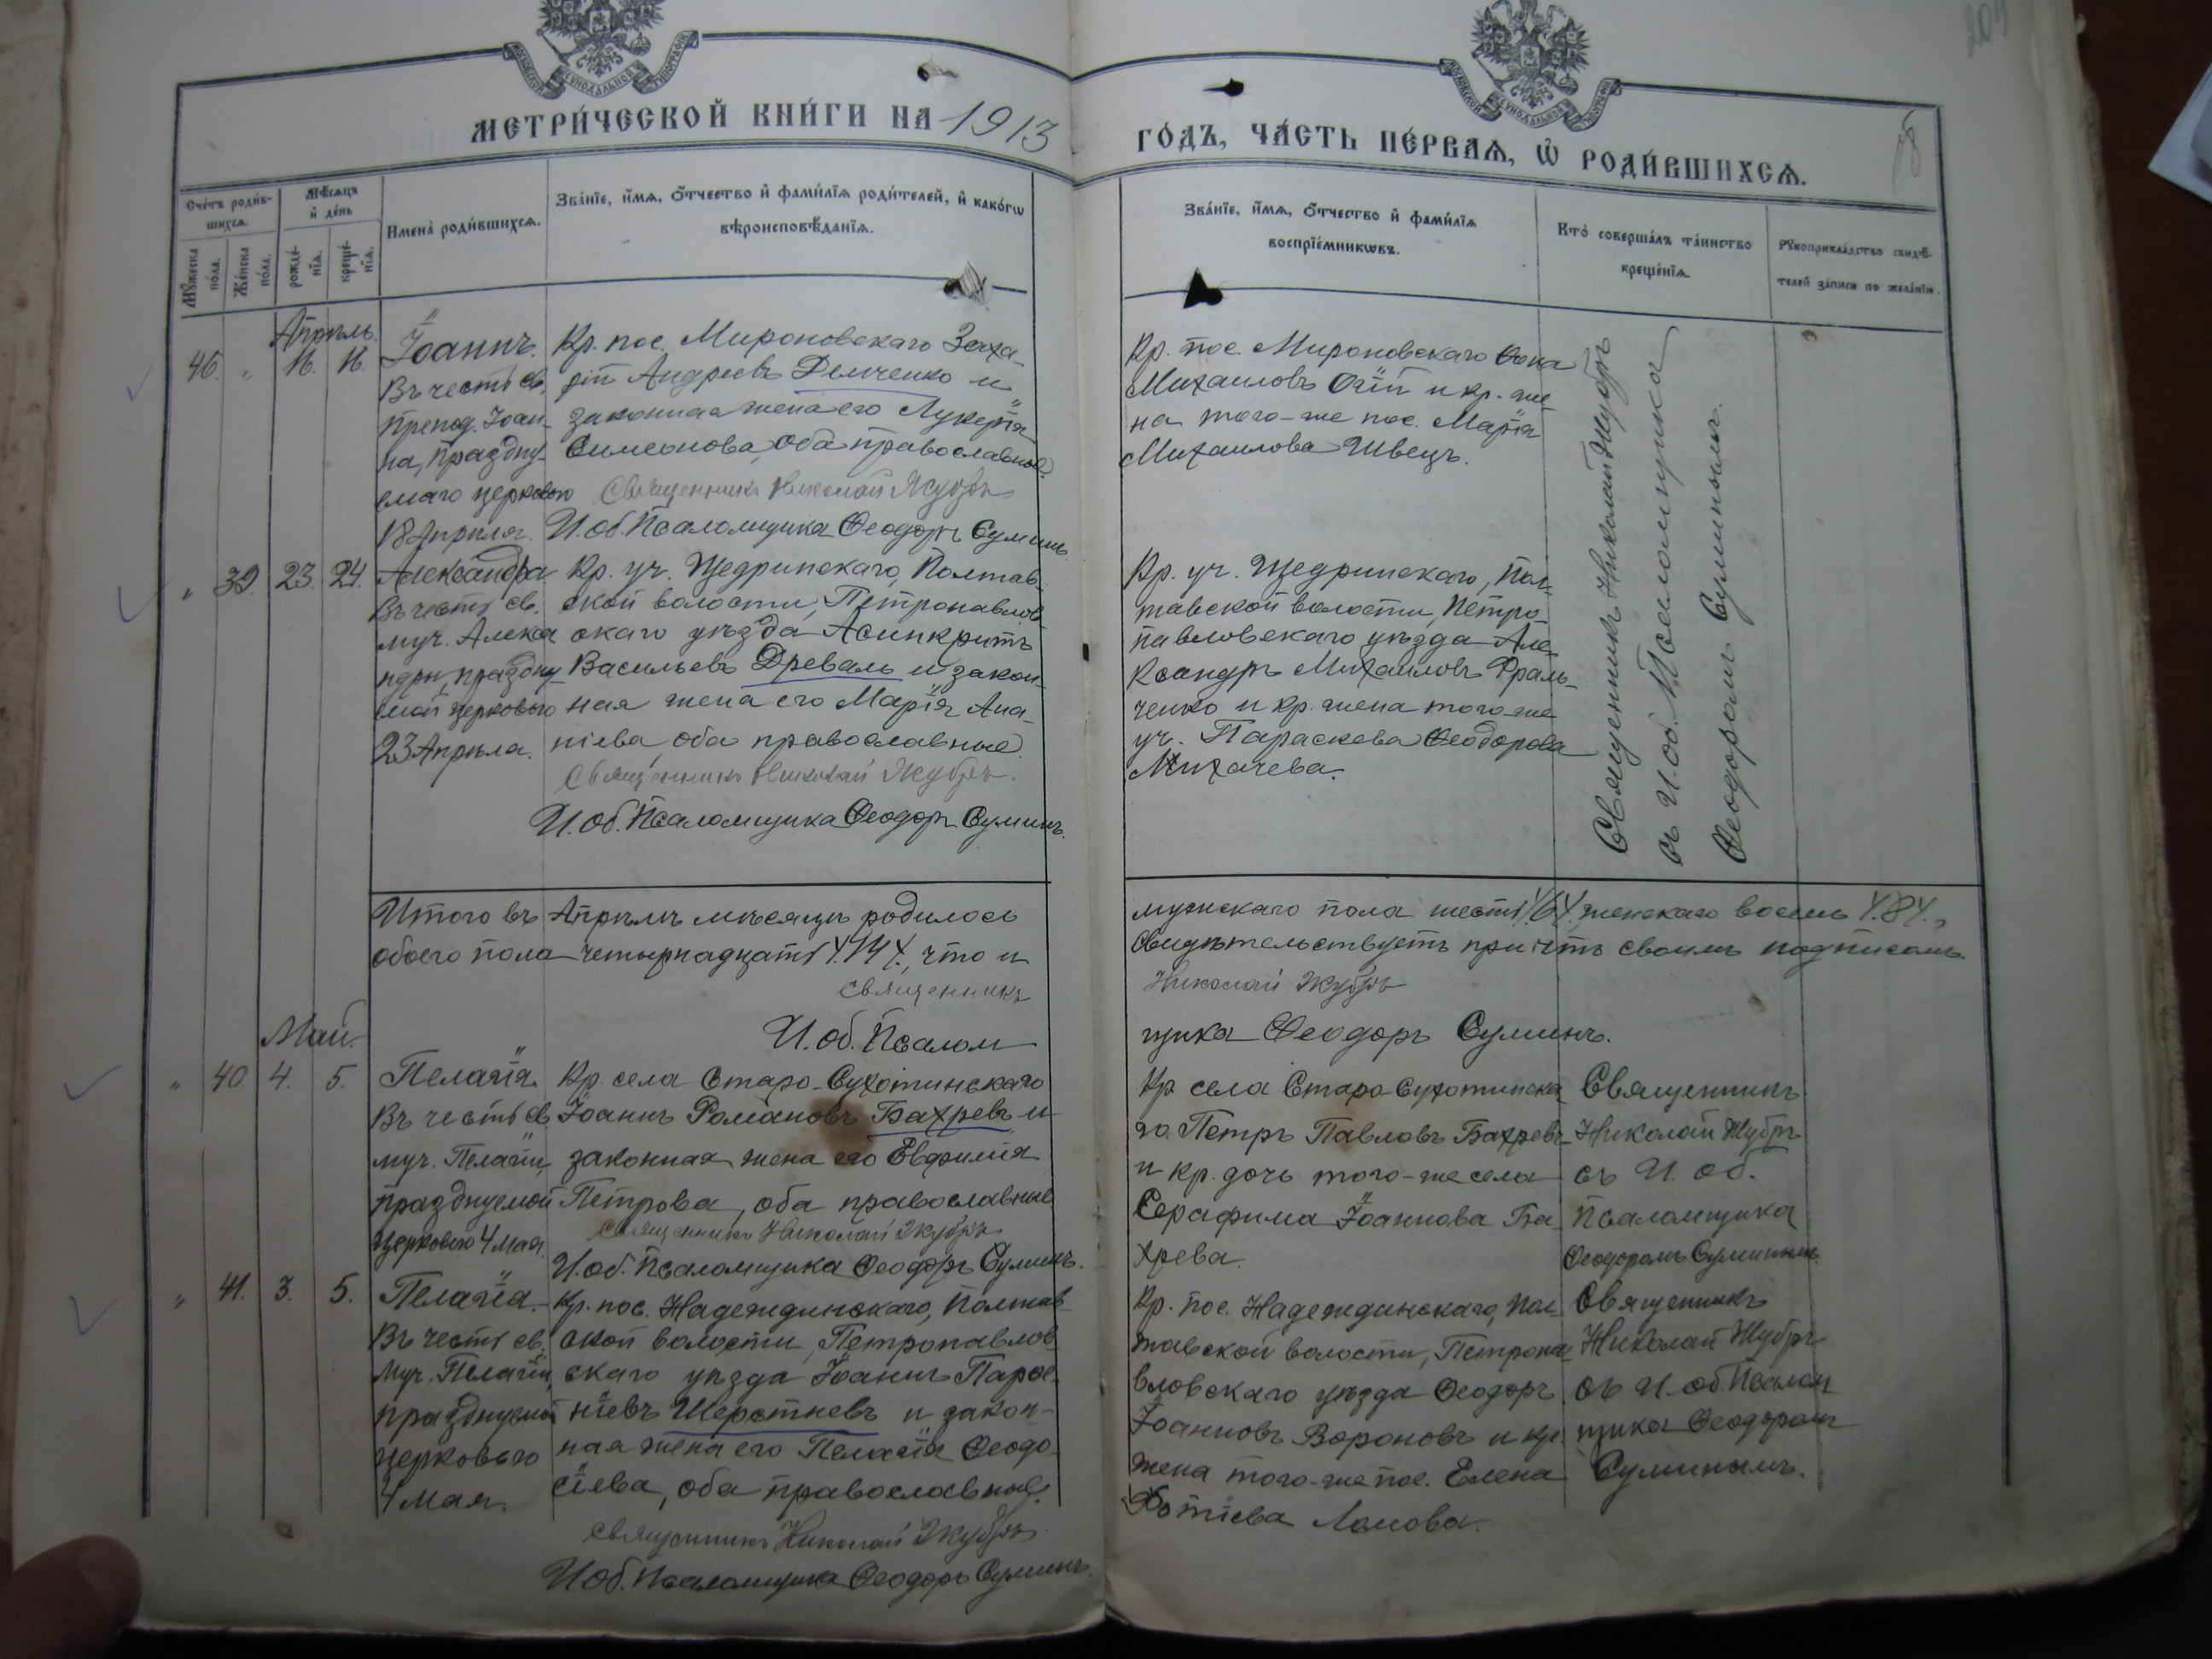 МЕТРИ́ЧЕСКОЙ КНИ́ГИ НА 1913
ГО́ДЪ, ЧА́СТЬ ПЕ́РВАѦ, Ѡ҆ РОДИ́ВШИХСѦ.
Сче́тъ роди́в-
шихсѧ.
Мꙋ́жеска по́ла.
Же́нска по́ла.
Мѣ́сѧцъ
и҆ де́нь
рожде́-
нїѧ.
креще́-
нїѧ.
И҆мена̀ роди́вшихсѧ.
Зва́нїе, и҆́мѧ, ѻ҆́тчество и҆ фами́лїѧ роди́телей, и҆ како́гѡ
вѣроисповѣ́данїѧ.
Зва́нїе, и҆́мѧ, ѻ҆́тчество и҆ фами́лїѧ
воспрїе́мникѡвъ.
Кто̀ соверша́лъ та́инство
креще́нїѧ.
Рꙋкоприкла́дство свидѣ́-
телей за́писи по жела́нїю.
Апрѣль.
46. " 16. 16.
Іоаннъ.
Въ честь св.
препод. Іоан-
на, праздну-
емаго церковью
18 Апрѣля.
Кр. пос. Мироновскаго Заха-
рій Андреевъ Демченко и
законная жена его Лукерія
Симеонова, оба православные
Священникъ Николай Жубръ
И. об. Псаломщика Ѳеодоръ Суминъ
Кр. пос. Мироновскаго Ѳома
Михаиловъ Огій и кр. же-
на того-же пос. Марія
Михаилова Швецъ.
Священникъ Николай Жубръ
съ И. об. Псаломщика
Ѳеодоромъ Суминымъ.
" 39. 23. 24.
Александра
Въ честь св.
муч. Алекса
ндры, праздну-
емой церковью
23 Апрѣла.
Кр. уч. Щедринскаго, Полтав-
ской волости, Петропавлов-
скаго уѣзда Асинкритъ
Васильевъ Древаль и закон-
ная жена его Марія Ана-
ніева, оба православные
Священникъ Николай Жубръ.
И. об. Псаломщика Ѳеодоръ Суминъ.
Кр. уч. Щедринскаго, Пол-
тавской волости, Петро-
павловскаго уѣзда Але-
ксандръ Михаиловъ Фраль-
ченко и кр. жена того-же
уч. Параскева Ѳеодорова
Михачева.
Итого въ Апрѣлѣ мѣсяцѣ родилось
обоего пола четырнадцать /14/, что и
мужскаго пола шесть /6/, женскаго восемь /8/.,
свидѣтельствуетъ причтъ своимъ подписомъ
Священникъ
Николай Жубръ
И. об. Псалом
щика Ѳеодоръ Суминъ.
Май.
" 40. 4. 5.
Пелагія.
Въ честь св
муч. Пелагіи,
празднуемой
церковью 4 мая.
Кр. села Старо-Сухотинскаго
Іоаннъ Романовъ Бахревъ и
законная жена его Евфимія
Петрова, оба православные
Священникъ Николай Жубръ
И. об. Псаломщика Ѳеодоръ Суминъ.
Кр села Старо-Сухотинска
го Петръ Павловъ Бахревъ
и кр. дочь того-же села
Серафима Іоаннова Ба
хрева.
Священникъ
Николай Жубръ
съ И. об.
Псаломщика
Ѳеодоромъ Суминымъ.
" 41. 3. 5.
Пелагія.
Въ честь св.
муч. Пелагіи,
празднуемой
церковью
4 Мая.
Кр. пос. Надеждинскаго, Полтав-
ской волости, Петропавлов-
скаго уѣзда Іоаннъ Парѳе-
ніевъ Шерстневъ и закон-
ная жена его Пелагія Ѳеодо-
сіева, оба православные.
Священникъ Николай Жубръ
И. об. Псаломщика Ѳеодоръ Суминъ.
Кр. пос. Надеждинскаго, Пол-
тавской волости, Петропа-
вловскаго уѣзда Ѳеодоръ
Іоанновъ Вороновъ и кр.
жена того-же пос. Елена
Фотіева Ломова.
Священникъ
Николай Жубръ
съ И. об. Псалом
щика Ѳеодоромъ
Суминымъ.